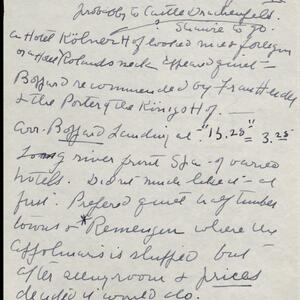 probably to Castle Drachenfels.
Shaire to go.
an Hotel Kölner Hof looked nice for lunch
or a Hotel Rolandseck appeared quiet—
Boppard recommended by Frau
& the Porter of the Königshof.
arr. Boppard Landing at "15.25" 3.25
Long river front Spa - of varied
hotels. Didn't much like it - at
first. Prefered quiet half timber
towns or *Remagen where the
is stuffed but
after seeing room & prices
decided it would do.